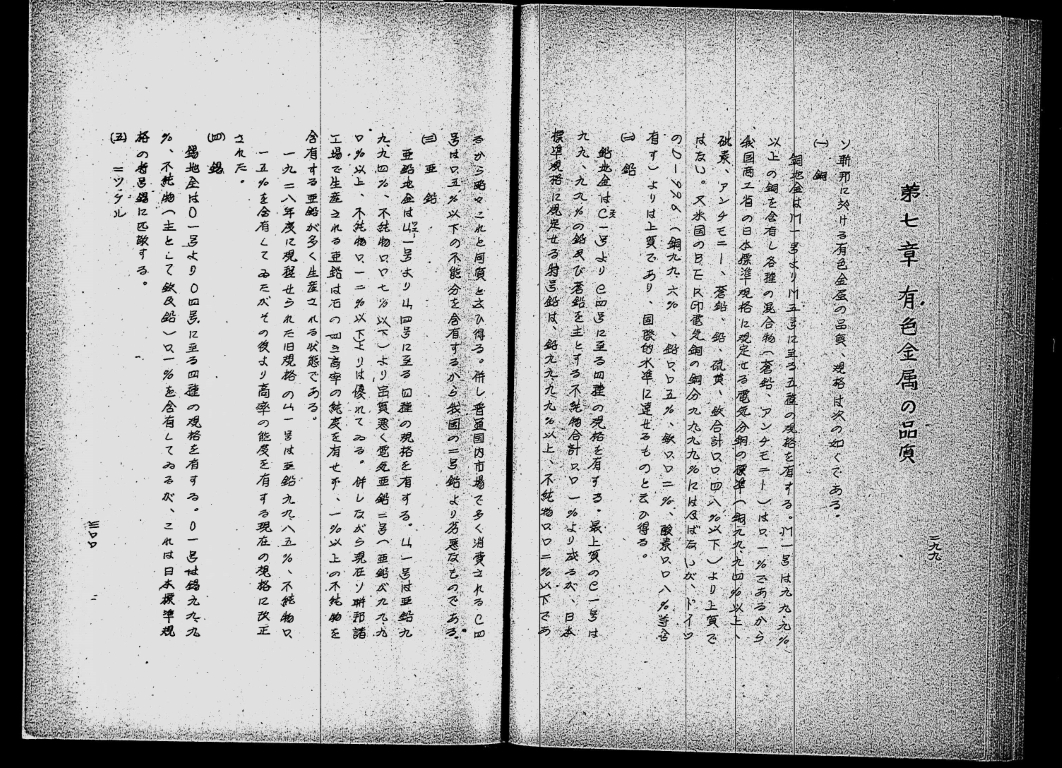 二九九
第七章 有色金属の品質
ソ聯邦に於ける有色金属の品質、規格は次の如くである。
(一) 銅
銅地金はM一号よりM五号に至る五種の規格を有する。M一号は九九.九%
以上の銅を含有し各種の混合物(蒼鉛、アンチモニー)は〇.一%であるから
我国商工省の日本標準規格に規定せる電気分銅の標準(銅九九.九四%以上、
砒素、アンチモニー、蒼鉛、鉛、硫黄、鉄合計〇.〇四八%以下)より上質で
はない。又米国の
の(銅九九.六%、鉛〇.〇五%、鉄〇.〇二%、酸素〇.〇八%等含
有す)よりは上質であり、国際的水準に達せるものと云ひ得る。
(二) 鉛
鉛地金はC一号よりC四号に至る四種の規格を有する。最上質のC一号は
九九.九九%の鉛及び蒼鉛を主とする不純物合計〇.〇一%より成るが、日本
標準規格に規定せる特号鉛は、鉛九九.九九%以上、不純物〇.〇二%以下であ
るから略々これと同質と云ひ得る。併し普通国内市場で多く消費されるC四
号は〇.五%以下の不純分を含有するから我国の二号鉛より劣悪なものである。
(三) 亜鉛
亜鉛地金はЦ一号よりЦ四号に至る四種の規格を有する。Ц一号は亜鉛九
九.九四%、不純物〇.〇七%以下)より品質悪く電気亜鉛二号(亜鉛が九九.九
〇%以上、不純物〇.一二%以下)よりは優れてゐる。併しながら現在ソ聯邦諸
工場で生産される亜鉛は右の高率の純度を有せず、一%以上の不純物を
含有する亜鉛が多く生産される状態である。
一九二八年度に現程せられた旧規格のЦ一号は亜鉛九八.五%、不純物〇.
一五%を含有してゐたがその後より高率の能度を有する現在の規格に改正
された。
(四) 錫
錫地金はO一号よりO四号に至る四種の規格を有する。O一号は錫九九.九
%、不純物(主として鉄及鉛)〇.一%を含有してゐるが、これは日本標準規
格の特号錫に匹敵する。
(五) ニツケル
三〇〇